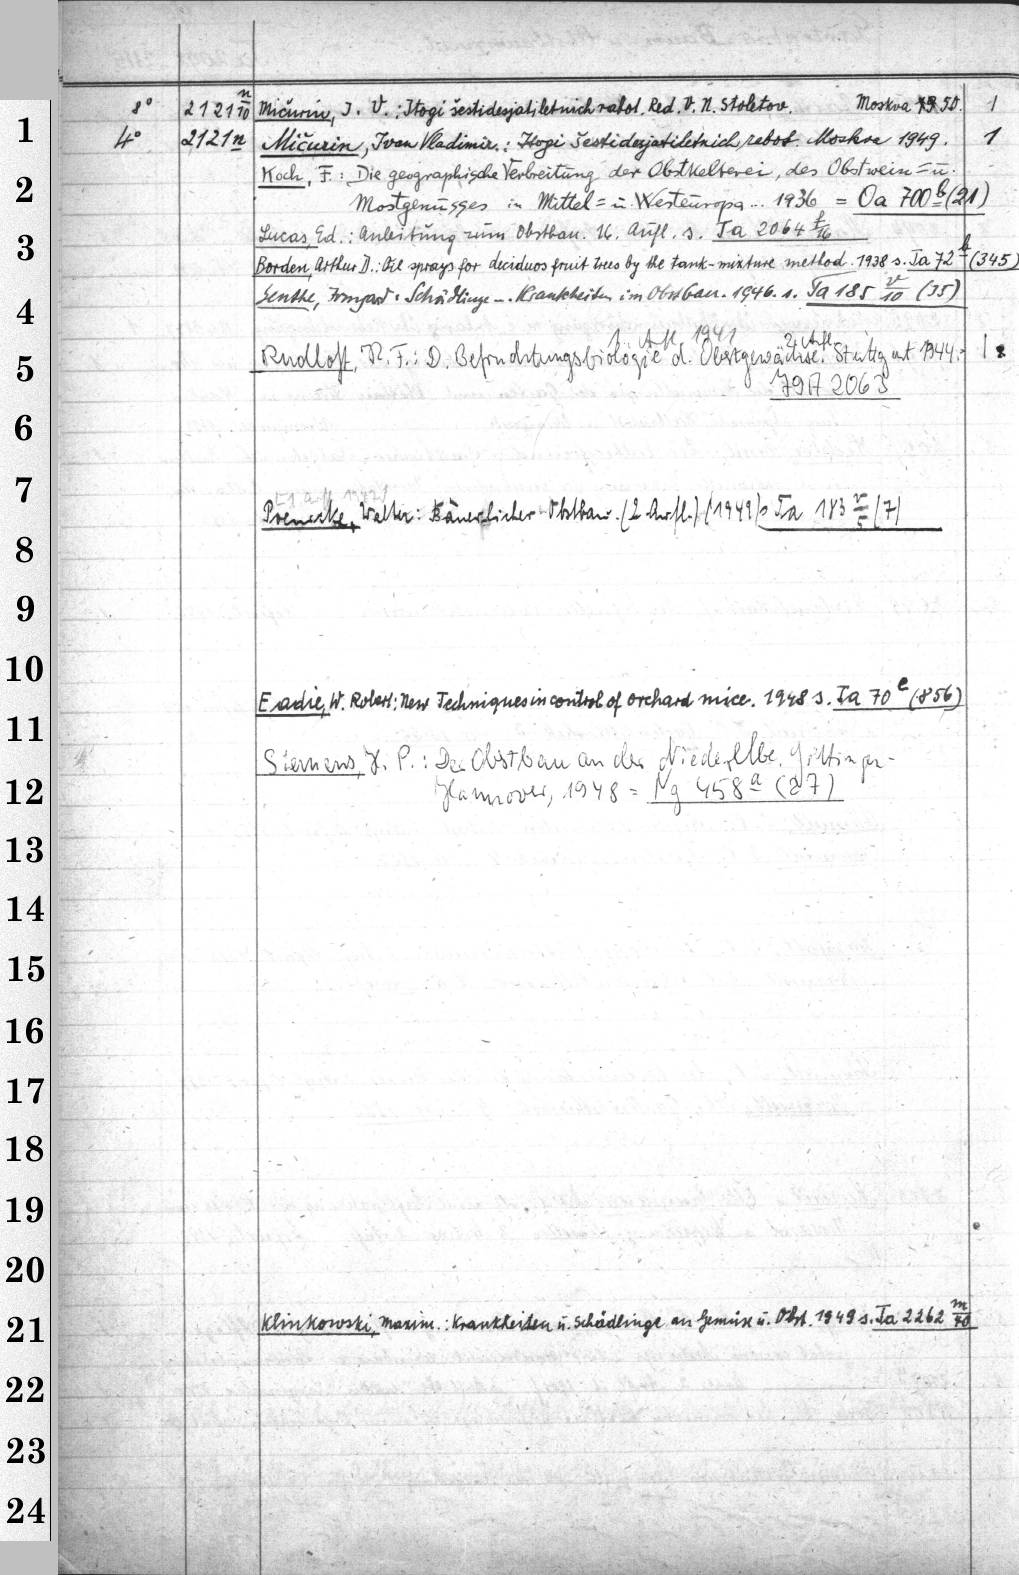 8° 2121 n/10 Mičurin, I. V.: Itogi šestidesjatiletnich rabot. Red. V. N. Stoletov. Moskva 1950. 1
1
4° 2121n Mičurin, Ivan Vladimir.: Itogi šestidesjatiletnich rabot. Moskva 1949. 1
Koch, F.: Die geographische Verbreitung der Obstkelterei, des Obstwein= u.
2
Mostgenusses in Mittel= u. Westeuropa... 1936 = Oa 700 b (21)
Lucas, Ed.: Anleitung zum Obstbau. 16. Aufl. s. Ta 2064 f/16
3
Borden, Arthur D.: Oil sprays for deciduos fruit trees by the tank-mixture method. 1938 s. Ta 72 f (345)
Genthe, Irmgard: Schädlinge u. Krankheiten im Obstbau. 1946. s. Ta 185 v/10 (35)
4
1. Aufl. 1941 2. Aufl.
Rudloff, K. F.: D. Befruchtungsbiologie d. Obstgewächse. Stuttgart 1944.- 1
5
79A 2063
6
7
Poenicke, Walter: Bäuerlicher Obstbau. (2. Aufl.) (1949) s Ta 183 v/5 (7)
8
9
10
Eadie, W. Robert: New Techniques in control of orchard mice. 1948 s. Ta 70 e (856)
11
Siemens, J. P.: Der Obstbau an der Niederelbe. Göttingen-
12
Hannover, 1948 = Ng 458 a (27)
13
14
15
16
17
18
19
20
21
Klinkowski, Maxim.: Krankheiten u. Schädlinge an Gemüse u. Obst. 1949 s. Ta 2262 m/70
22
23
24